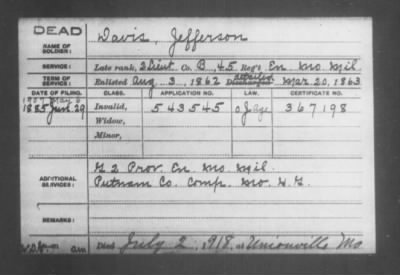 DEAD
NAME OF SOLDIER: Davis, Jefferson
SERVICE: Late rank, 2 Lieut Co. B, 45 Reg't En. Mo. Mil.
TERM OF SERVICE: Enlisted Aug 3, 1862 Discharged Mar 20, 1863
DATE OF FILING. CLASS. APPLICATION NO. LAW. CERTIFICATE NO.
1885 29 Invalid, 543545 367198
Widow,
Minor,
ADDITIONAL SERVICES: G 2 Prov. En. Mo Mil.
Putnam Co. Comp. Mo. H.G.
REMARKS:
Died July 2, 1918, at Unionville Mo